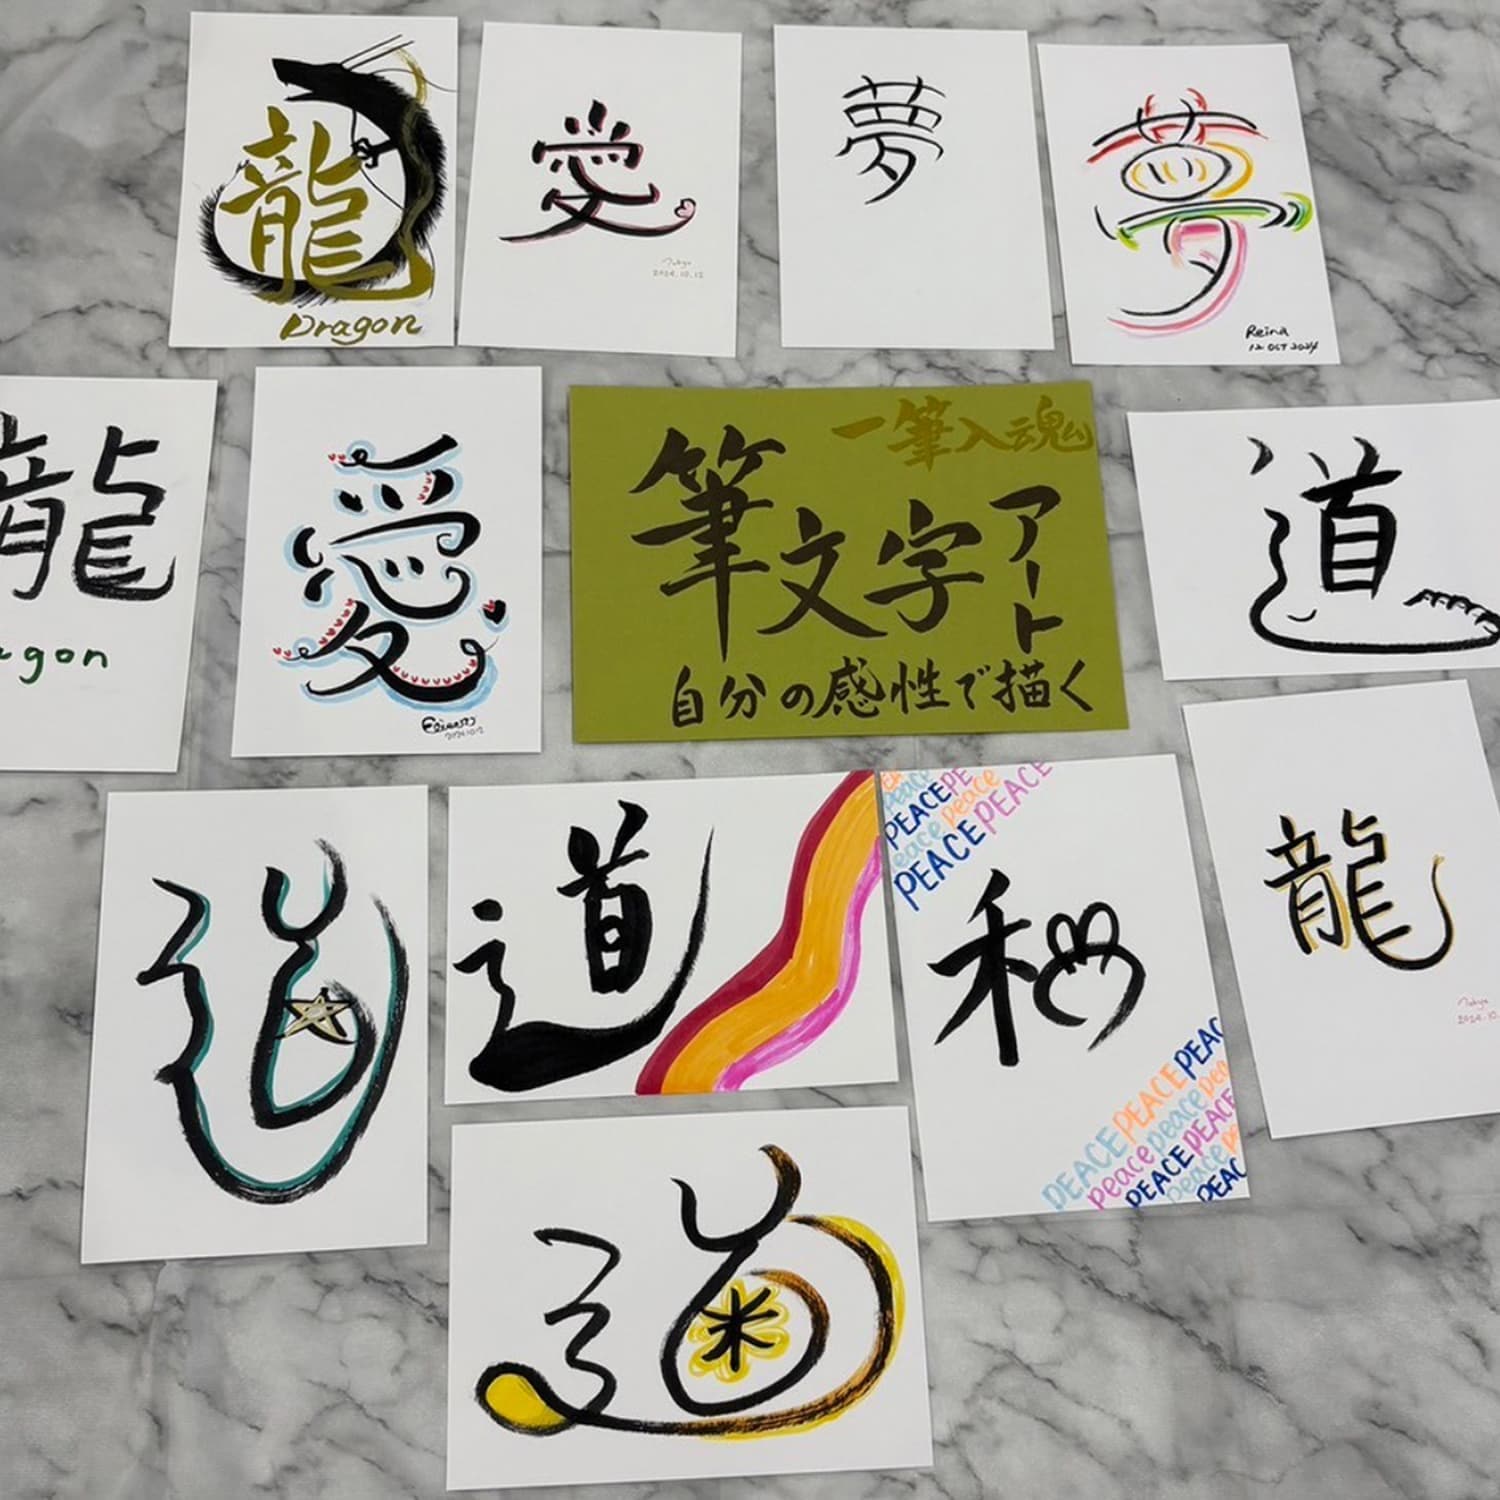 龍
Dragon
愛
2024.10.12
夢
夢
Reina
12 OCT 2024
龍
agon
愛
2024.10.12
一筆入魂
筆文字アート
自分の感性で描く
道
道
道
peace
PEACE PE
peace peace
PEACE PEACE
和
PEAC
PEACE PEACE
peace peace
PEACE PEACE
peace
PEAC
龍
2024.10.
道